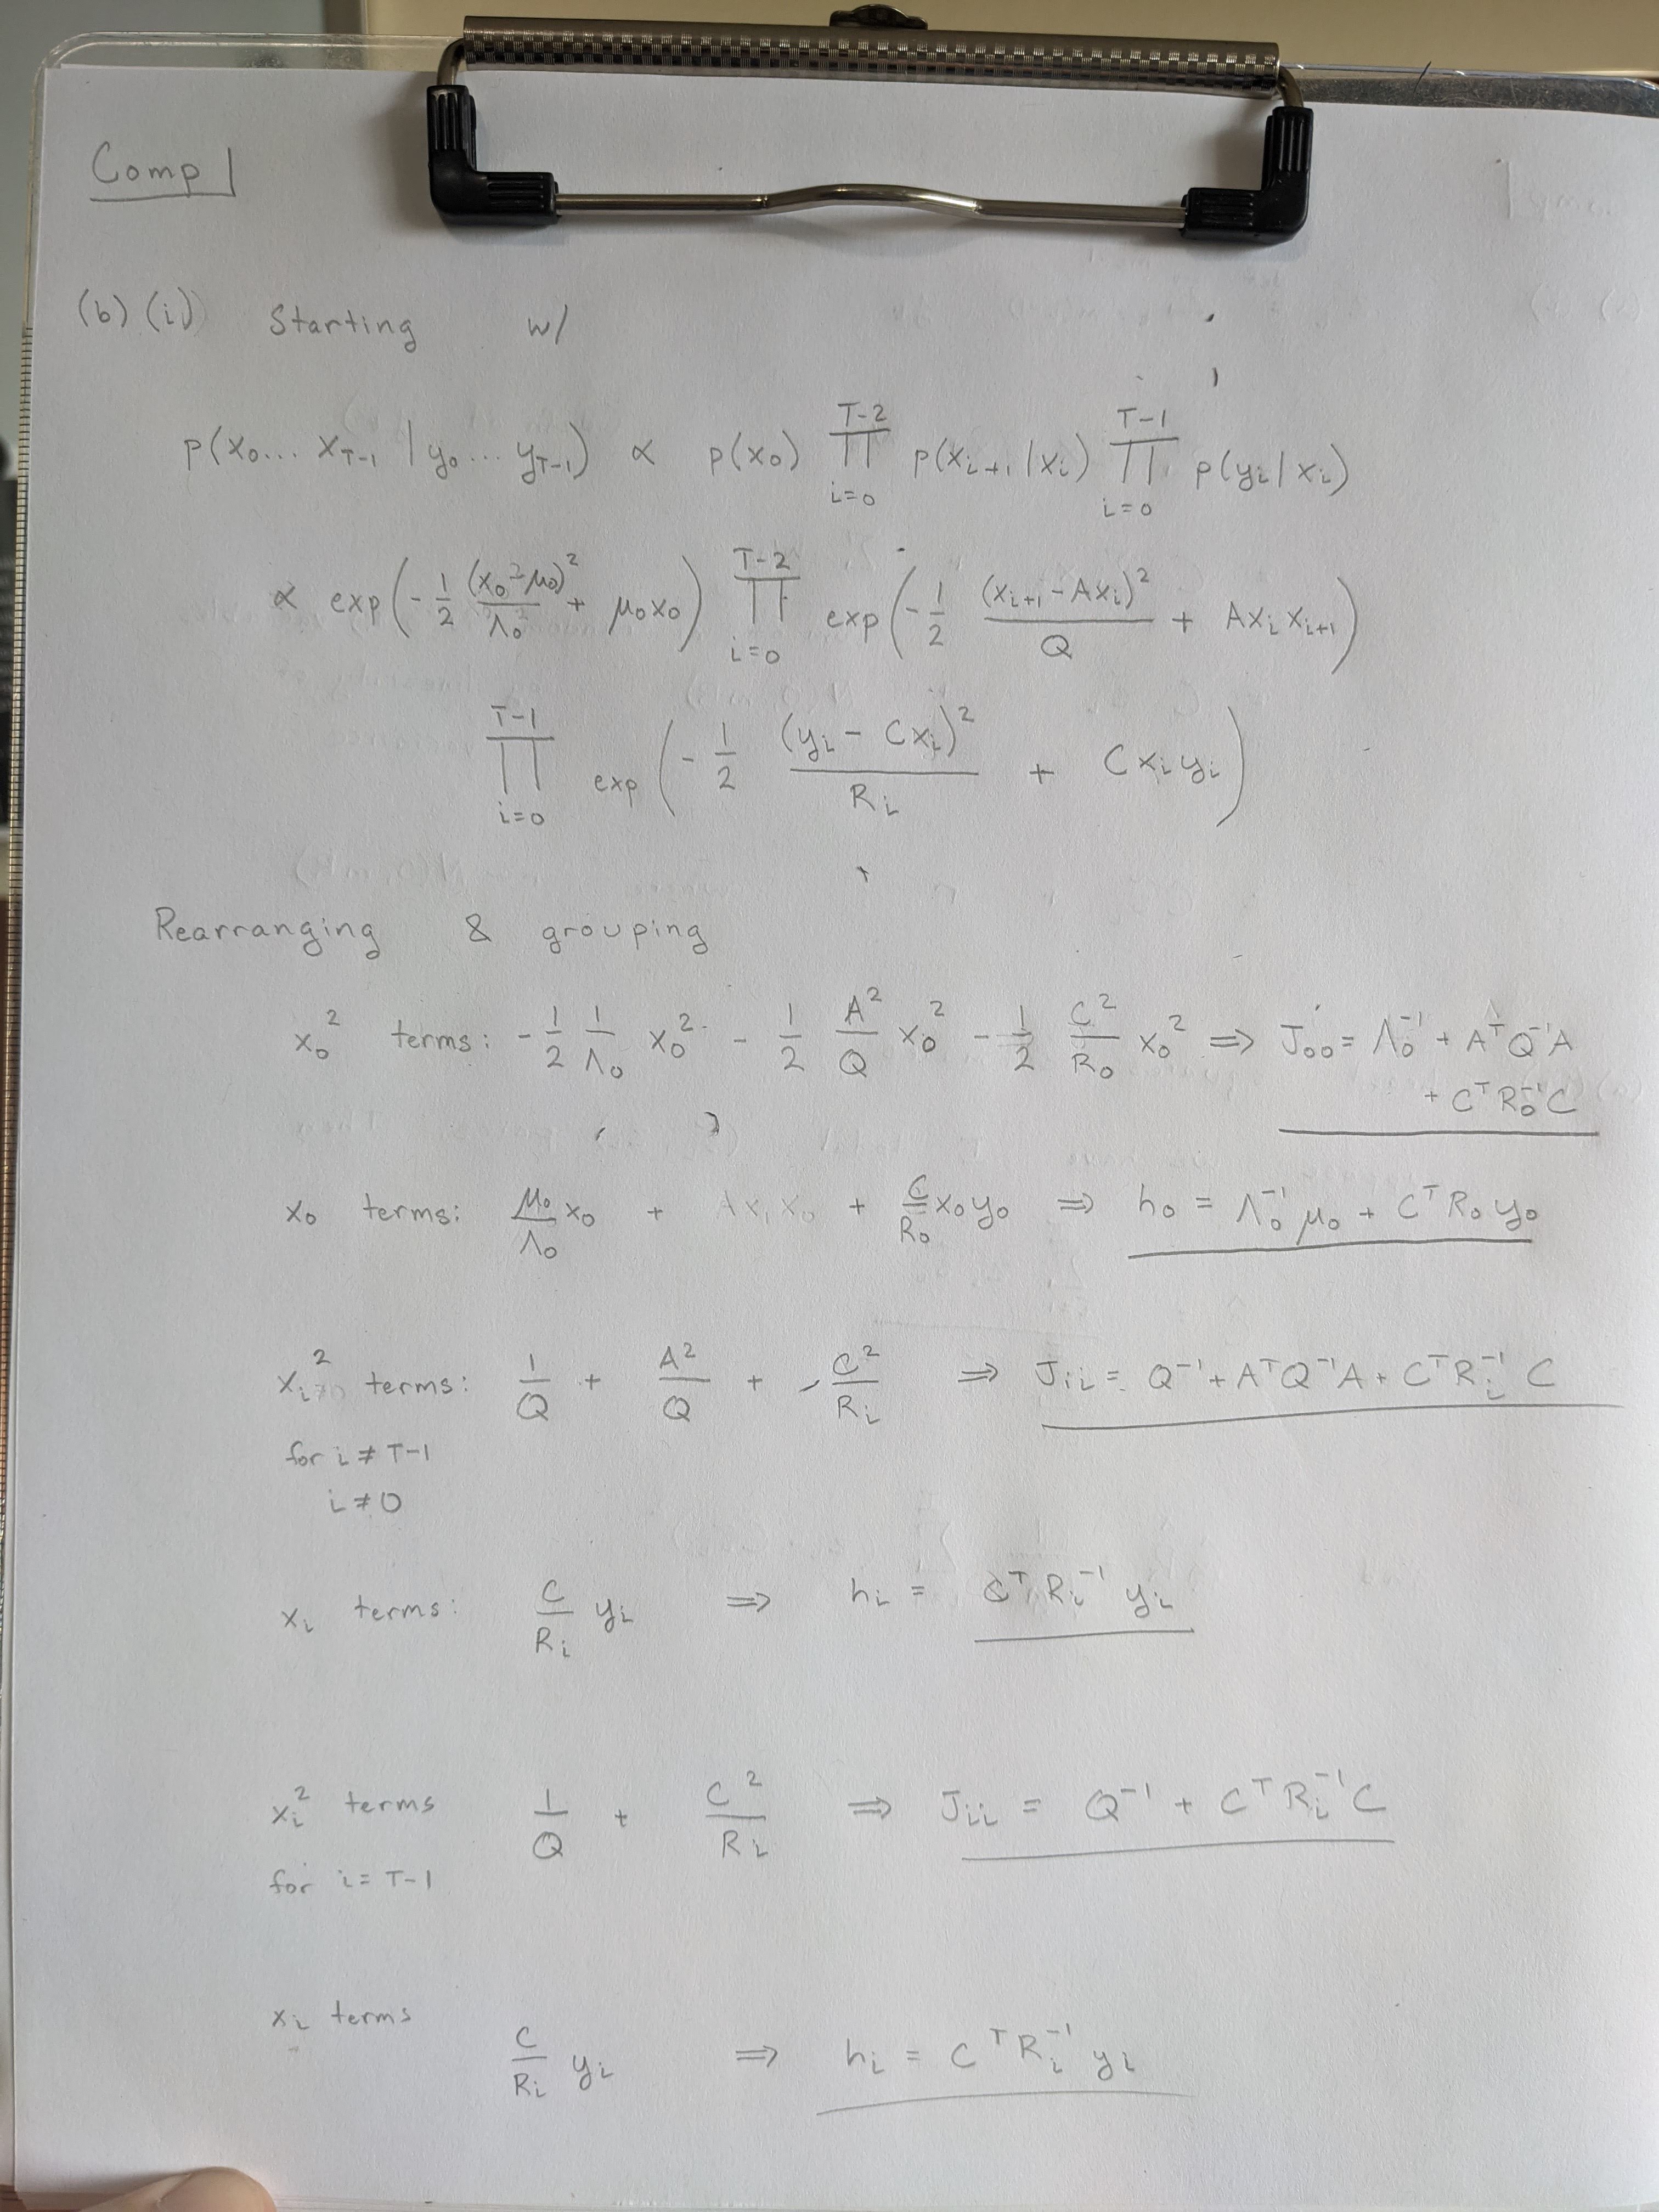 Comp 1
(b) (i) Starting w/
p(x₀... x_{T-1} | y₀... y_{T-1}) ∝ p(x₀) ∏_{i=0}^{T-2} p(x_{i+1} | x_i) ∏_{i=0}^{T-1} p(y_i | x_i)
∝ exp(-1/2 (x₀ - μ₀)²/Λ₀ + μ₀x₀) ∏_{i=0}^{T-2} exp(-1/2 (x_{i+1} - Ax_i)²/Q + Ax_i x_{i+1})
∏_{i=0}^{T-1} exp(-1/2 (y_i - Cx_i)²/R_i + Cx_i y_i)
Rearranging & grouping
x₀² terms: -1/2 1/Λ₀ x₀² - 1/2 A²/Q x₀² - 1/2 C²/R₀ x₀² ⇒ J₀₀ = Λ₀⁻¹ + AᵀQ⁻¹A
+ CᵀR₀⁻¹C
x₀ terms: μ₀/Λ₀ x₀ + Ax₁x₀ + C/R₀ x₀y₀ ⇒ h₀ = Λ₀⁻¹μ₀ + CᵀR₀y₀
x_i² terms: 1/Q + A²/Q + C²/R_i ⇒ J_ii = Q⁻¹ + AᵀQ⁻¹A + CᵀR_i⁻¹C
for i ≠ T-1
i ≠ 0
x_i terms: C/R_i y_i ⇒ h_i = CᵀR_i⁻¹y_i
x_i² terms 1/Q + C²/R_i ⇒ J_ii = Q⁻¹ + CᵀR_i⁻¹C
for i = T-1
x_i terms C/R_i y_i ⇒ h_i = CᵀR_i⁻¹y_i